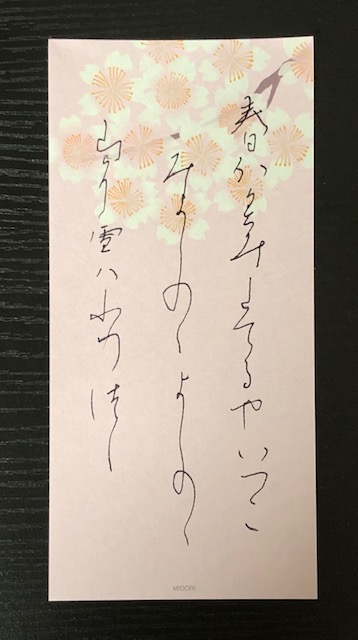 春かすみたてるやいつこ
みよしのゝよしのゝ
山に雪ハふりつゝ
MIDORI